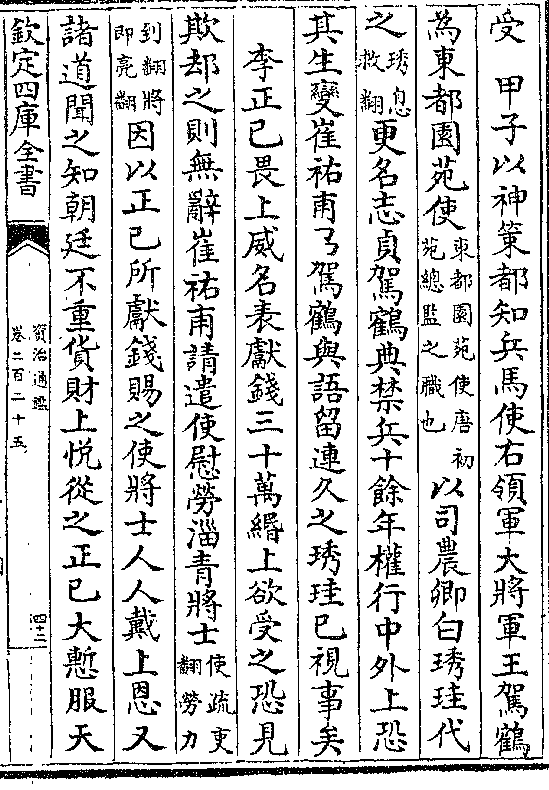 受　甲子以神策都知兵馬使右領軍大將軍王駕鶴
為東都園苑使東都園苑使唐初苑總監之職也以司農卿白琇珪代
之琇息救翻更名志貞駕鶴典禁兵十餘年權行中外上恐
其生變崔祐甫召駕鶴與語留連久之琇珪已視事矣
李正已畏上威名表獻錢三十萬緡上欲受之恐見
欺却之則無辭崔祐甫請遣使慰勞淄青將士使疏吏翻勞力
到翻將即亮翻因以正已所獻錢賜之使將士人人戴上恩又
諸道聞之知朝廷不重貨財上悦從之正已大慙服天
欽定四庫全書
資治通鑑
卷二百二十五
四十三